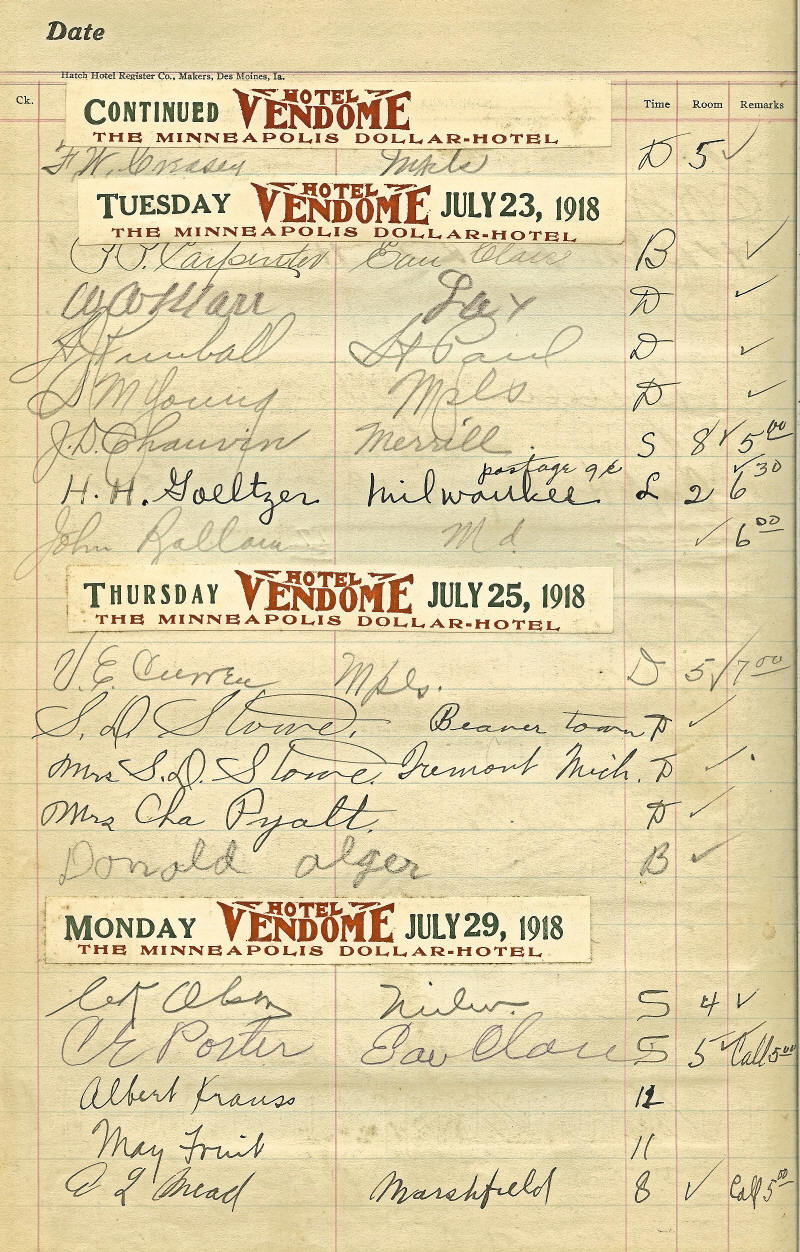 Date
Hatch Hotel Register Co., Makers, Des Moines, Ia.
Ck. Time Room Remarks
CONTINUED HOTEL VENDOME
THE MINNEAPOLIS DOLLAR-HOTEL
F. W. Creasey Mpls D 5 ✓
TUESDAY HOTEL VENDOME JULY 23, 1918
THE MINNEAPOLIS DOLLAR-HOTEL
Carpenter Eau Claire B ✓
Marr Lax D ✓
Kimball St Paul D ✓
S M Young Mpls D ✓
J. D. Chauvin Merrill S 8 ✓ 5 00
postage 9¢
H. H. Goeltzer Milwaukee L 2 ✓ 6 30
John M d ✓ 6 00
THURSDAY HOTEL VENDOME JULY 25, 1918
THE MINNEAPOLIS DOLLAR-HOTEL
V. E. Curren Mpls. D 5 ✓ 7 00
S. D. Stowe. Beaver town D ✓
Mrs S. D. Stowe. Tremont Mich. D ✓
Mrs Cha Pyatt. D ✓
Donald alger B ✓
MONDAY HOTEL VENDOME JULY 29, 1918
THE MINNEAPOLIS DOLLAR-HOTEL
Olson Milw. S 4 ✓
C E Porter Eau Claire S 5 ✓ Call 5 00
Albert Krauss 12
May Fruit 11
Mead Marshfield 8 ✓ Call 5 00